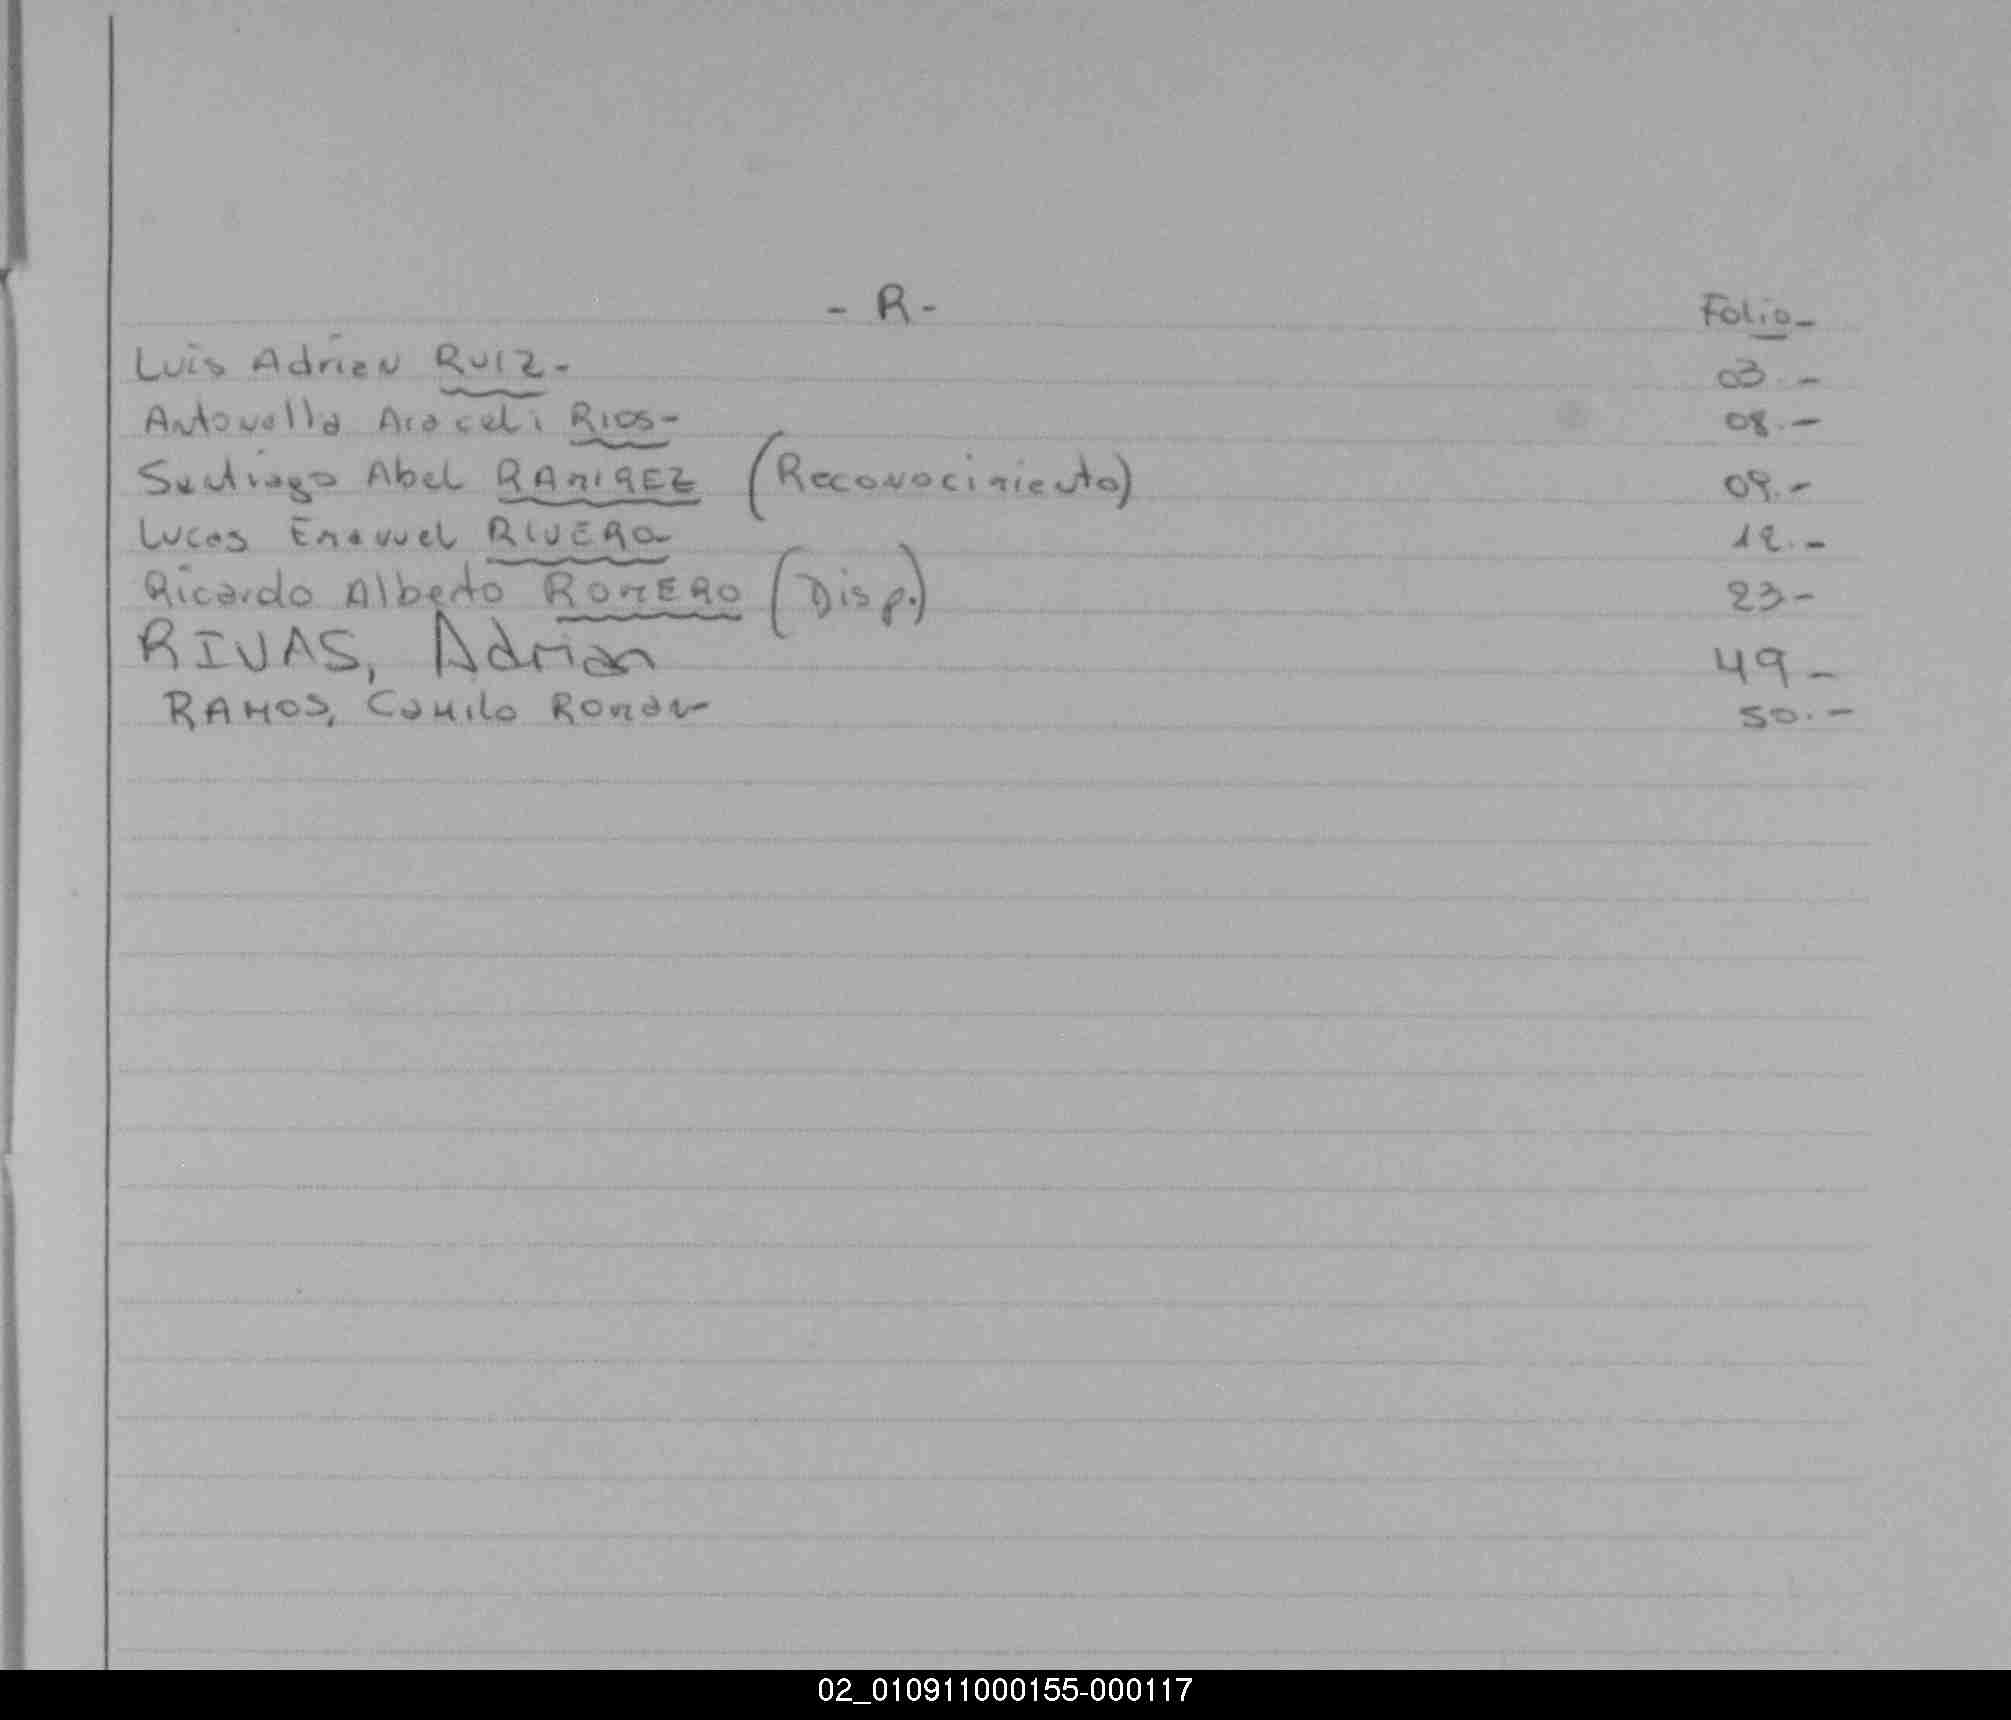 - R -
Folio -
Luis Adrian RUIZ - 03. -
Antonella Araceli RIOS - 08. -
Santiago Abel RAMIREZ (Reconocimiento) 09. -
Lucas Emanuel RIVERA 12. -
Ricardo Alberto ROMERO (Disp.) 23 -
RIVAS, Adrian 49 -
RAMOS, Camilo Roman 50. -
02_010911000155-000117